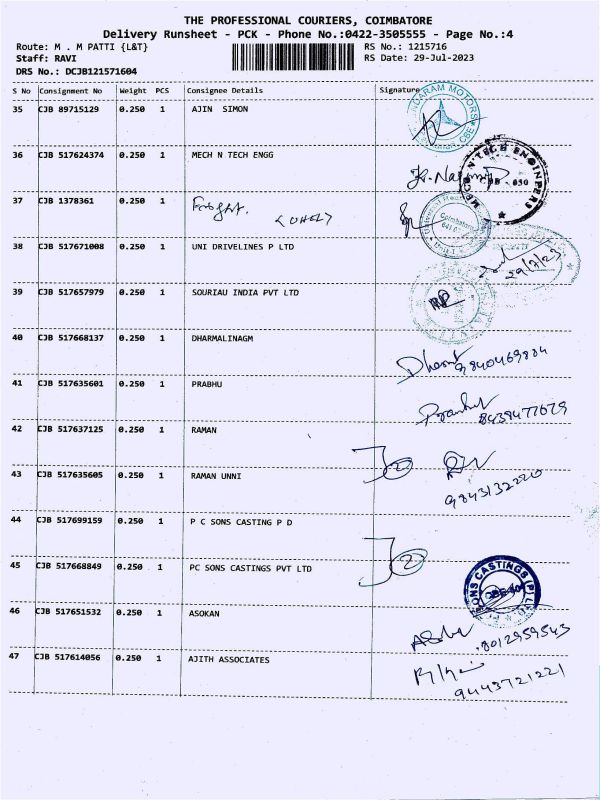 THE PROFESSIONAL COURIERS, COIMBATORE
Delivery Runsheet - PCK - Phone No.:0422-3505555 - Page No.:4
Route: M . M PATTI {L&T}
RS No.: 1215716
Staff: RAVI
RS Date: 29-Jul-2023
DRS No.: DCJB121571604
S No Consignment No Weight PCS Consignee Details Signature
35 CJB 89715129 0.250 1 AJIN SIMON
36 CJB 517624374 0.250 1 MECH N TECH ENGG
37 CJB 1378361 0.250 1
38 CJB 517671008 0.250 1 UNI DRIVELINES P LTD
29/7/23
39 CJB 517657979 0.250 1 SOURIAU INDIA PVT LTD
40 CJB 517668137 0.250 1 DHARMALINAGM
9840469884
41 CJB 517635601 0.250 1 PRABHU
8438477679
42 CJB 517637125 0.250 1 RAMAN
43 CJB 517635605 0.250 1 RAMAN UNNI
9843132220
44 CJB 517699159 0.250 1 P C SONS CASTING P D
45 CJB 517668849 0.250 1 PC SONS CASTINGS PVT LTD
SONS CASTINGS (P) LTD
46 CJB 517651532 0.250 1 ASOKAN
8012959543
47 CJB 517614056 0.250 1 AJITH ASSOCIATES
9443721221